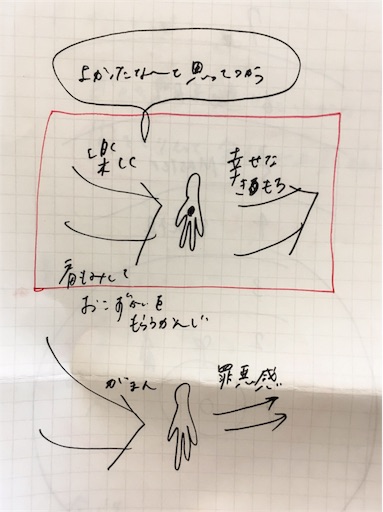 よかったなーと思ってつかう
楽しく
幸せな
きもち
肩もみして
おこずかいを
もらうかんじ
がまん
罪悪感